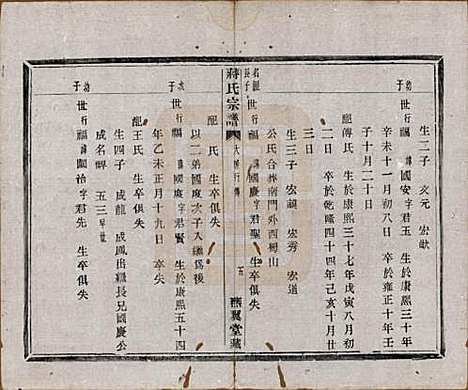 生二子 文元 宏猷
世行福 諱國安字君玉 生於康熙三十年
辛未十一月初八日 卒於雍正十年壬
子十月二十日
配傅氏 生於康熙三十七年戊寅八月初
二日 卒於乾隆四十四年己亥十月廿
三日
生三子 宏禎 宏秀 宏道
公氏合葬南門外西梅山
名祖長子 世行福 諱國慶字君聖 生卒俱失
配 氏 生卒俱失
以二弟國度次子入繼爲後
蔣氏宗譜 大房行傳 五 燕翼堂藏
次子 世行福 諱國度字君賢 生於康熙五十四
年乙未正月十九日 卒失
配王氏 生卒俱失
生四子 成龍 成鳳出繼長兄國慶公
成名 五三早世
幼子 世行福 諱國治字君先 生卒俱失